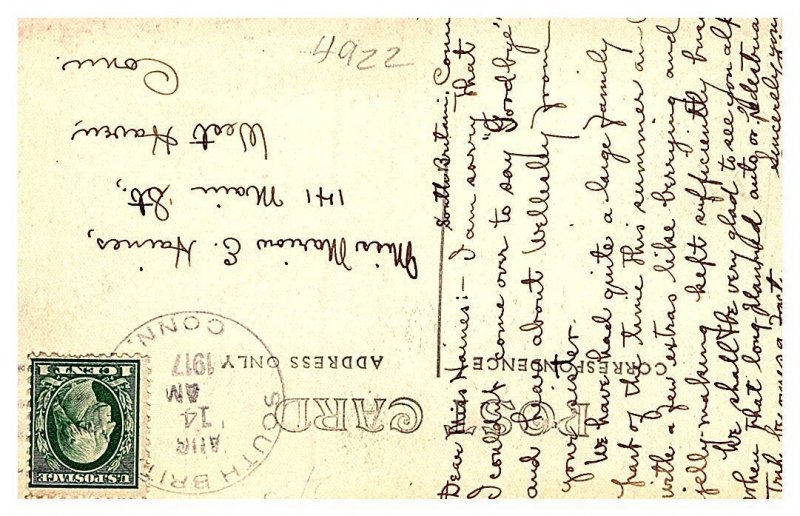 4922
POST CARD
CORRESPONDENCE
ADDRESS ONLY
SOUTH BRI
CONN.
AUG
14
AM
1917
U.S. POSTAGE
1 CENT 1
Miss Marion E. Haines,
141 Main St.,
West Haven,
Conn.
South Britain, Conn.
Dear Miss Haines:- I am sorry that
I couldn't come over to say "Goodbye"
and hear about Wellesley from
your sister.
We have had quite a large family
part of the time this summer and
with a few extras like berrying and
jelly-making kept sufficiently busy.
We shall be very glad to see you all
when that long-planned auto or pedestrian
trip
Sincerely